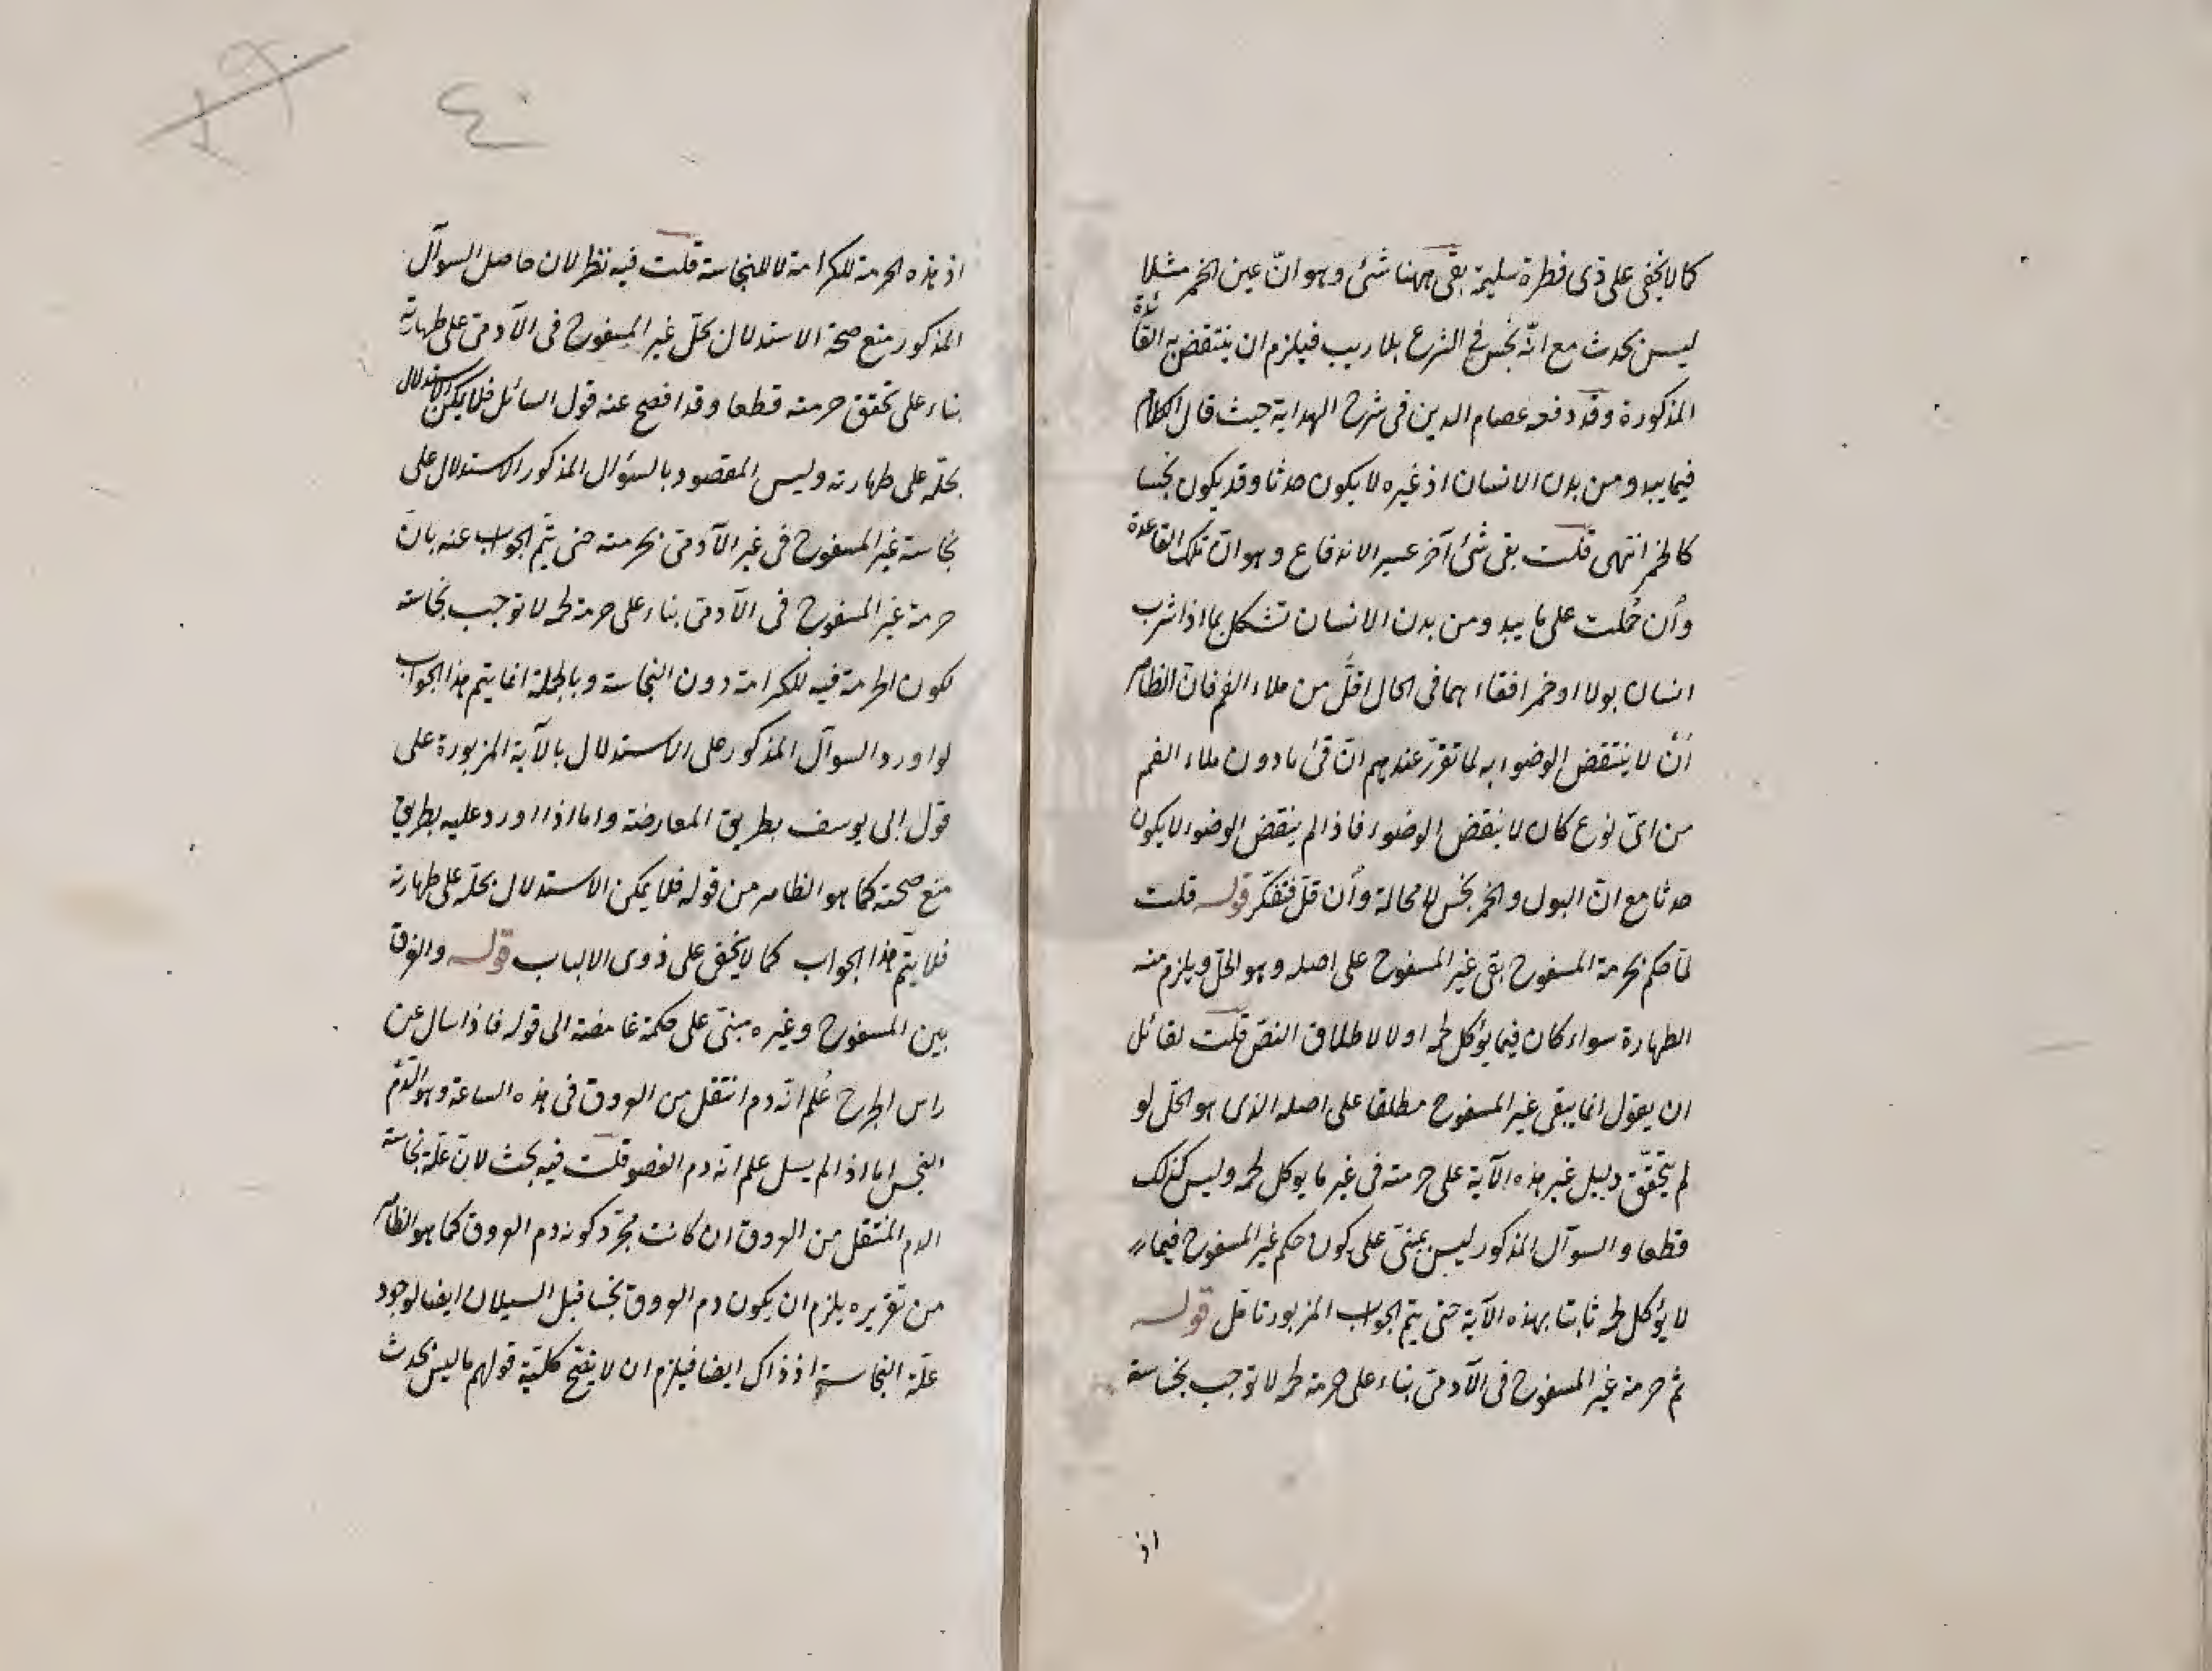 كما لا يخفى على ذى فطرة سليمة بقى ههنا شئ وهو انّ عين الخمر مثلا
ليس بحدث مع انّه نجس فى الشرع بلا ريب فيلزم ان ينتقض به القاعدة
المذكورة وقد دفعه عصام الدين فى شرح الهداية حيث قال الكلام
فيما يبدو من بدن الانسان اذ غيره لا يكون حدثا وقد يكون نجسا
كالخمر انتهى قلت بقى شئ آخر عسير الاندفاع وهو انّ تلك القاعدة
وأن حُملت على ما يبدو من بدن الانسان تشكل بما اذا شرب
انسان بولا او خمرا فقاءهما فى الحال اقلّ من ملاء الفم فان الظاهر
أن لا ينتقض الوضوء به لما تقرّر عندهم انّ قئ ما دون ملاء الفم
من اىّ نوع كان لا ينقض الوضوء فاذا لم ينقض الوضوء لا يكون
حدثا مع انّ البول والخمر نجس لا محالة وأن قلّ فتفكّر قوله قلت
لمّا حكم بحرمة المسفوح بقى غير المسفوح على اصله وهو الحلّ ويلزم منه
الطهارة سواء كان فيما يؤكل لحمه اولا لاطلاق النصّ قلت لقائل
ان يقول انما يبقى غير المسفوح مطلقا على اصله الذى هو الحلّ لو
لم يتحقّق دليل غير هذه الآية على حرمته فى غير ما يوكل لحمه وليس كذلك
قطعا والسوآل المذكور ليس بمبنىّ على كون حكم غير المسفوح فيما
لا يؤكل لحمه ثابتا بهذه الآية حتى يتمّ الجواب المزبور تامّل قوله
ثم حرمة غير المسفوح فى الآدمىّ بناء على حرمة لحمه لا توجب نجاسة
اذ
٤٠
اذ هذه الحرمة للكرامة لا للنجاسة قلت فيه نظر لان حاصل السوآل
المذكور منع صحة الاستدلال بحلّ غير المسفوح فى الآدمىّ على طهارته
بناء على تحقق حرمته قطعا وقد افصح عنه قول السائل فلا يمكن الاستدلال
بحلّه على طهارته وليس المقصود بالسؤال المذكور الاستدلال على
نجاسة غير المسفوح فى غير الآدمىّ بحرمته حتى يتمّ الجواب عنه بانّ
حرمة غير المسفوح فى الآدمىّ بناء على حرمة لحمه لا توجب نجاسته
لكون الحرمة فيه للكرامة دون النجاسة وبالجملة انما يتم هذا الجواب
لو اورد السوآل المذكور على الاستدلال بالآية المزبورة على
قول ابى يوسف بطريق المعارضة واما اذا اورد عليه بطريق
منع صحته كما هو الظاهر من قوله فلا يمكن الاستدلال بحلّه على طهارته
فلا يتمّ هذا الجواب كما لا يخفى على ذوى الالباب قوله والفرق
بين المسفوح وغيره مبنىّ على حكمة غامضة الى قوله فاذا سال عن
راس الجرح عُلم انّه دم انتقل من العروق فى هذه الساعة وهو الدّم
النجس اما اذا لم يسل علم انّه دم العضو قلت فيه بحث لانّ علّة نجاسة
الدم المنتقل من العروق ان كانت مجرّد كونه دم العروق كما هو الظاهر
من تقريره يلزم ان يكون دم العروق نجسا قبل السيلان ايضا لوجود
علّة النجاسة اذ ذاك ايضا فيلزم ان لا يفتح كلّيّة قولهم ما ليس بحدث